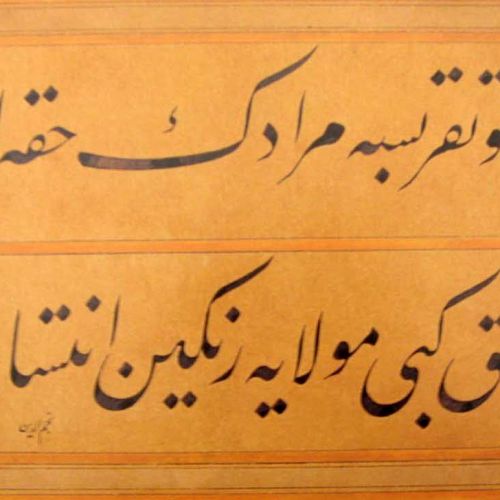 و تقربسه مرادك حقه
ق كبی مولایه رنكین انتسا
نجم الدین